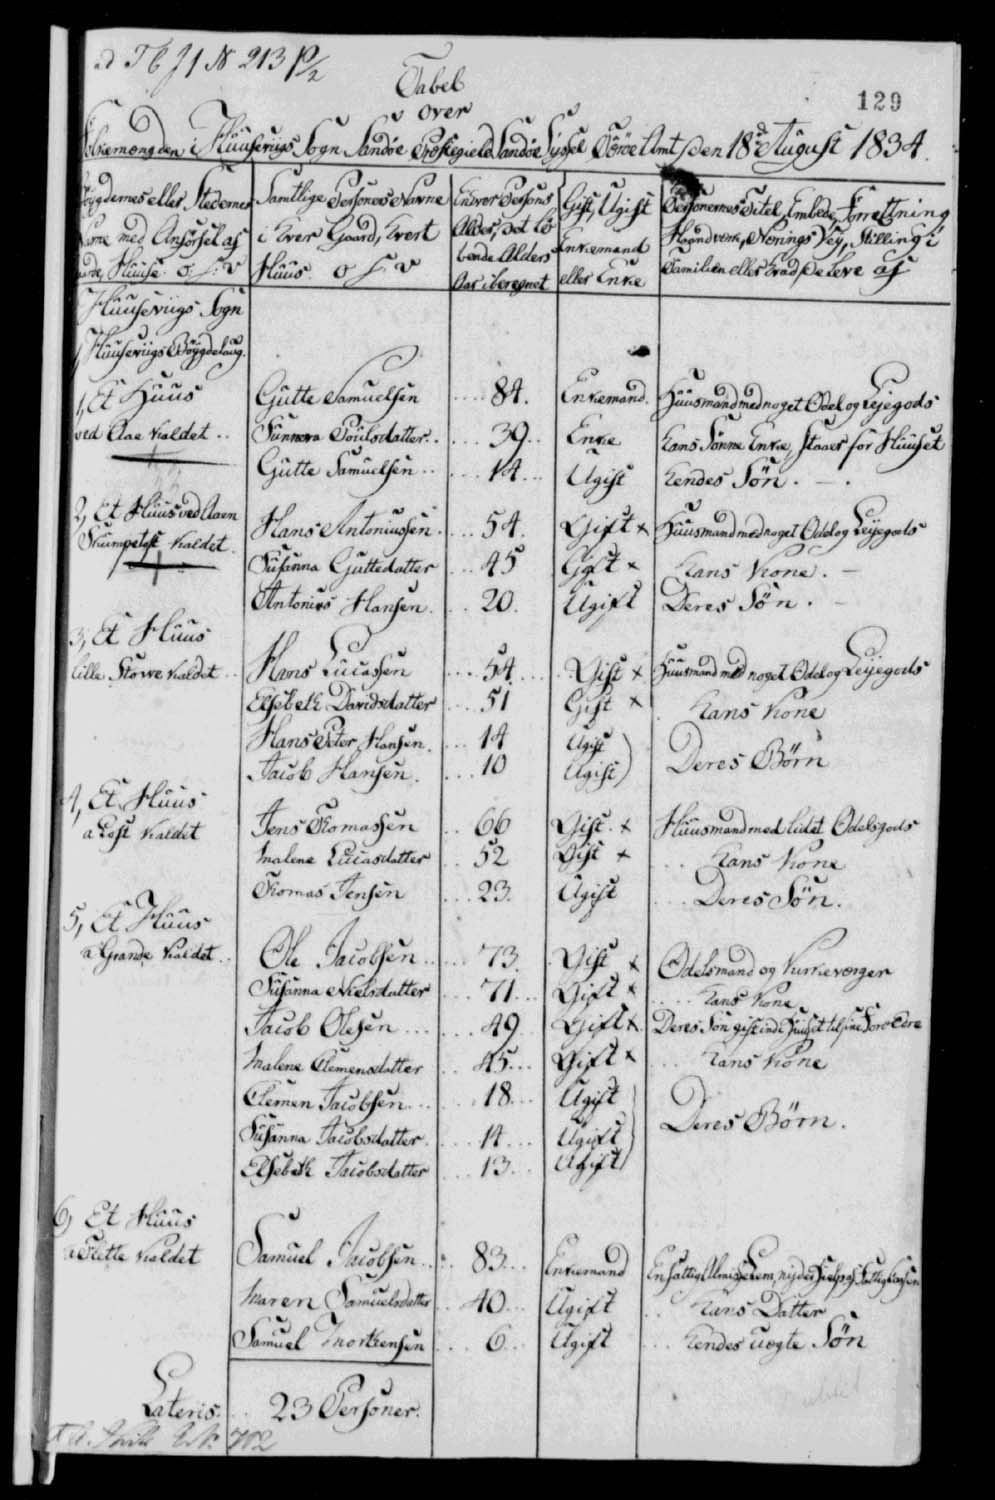 ad T C J1 № 213 P/2
129
Tabel
over
Folkemængden i Huuseviigs Sogn Sandöe Præstegield Sandöe Syssel Færöe Amt den 18de August 1834.
Bÿgdernes eller Stedernes Navne med Anförsel af Gaarde, Huuse o: s: v
Samtlige Personers Navne i hver Gaard, hvert Huus o s: v
Enhver Persons Alder, det löbende Alders Aar iberegnet
Gift, Ugift Enkemand eller Enke
Personernes Titel, Embede, Forretning Haandværk, Nærings Vey, Stilling i Familien eller hvad de leve af
Huuseviigs Sogn
Huuseviigs Böÿgdelaug.
1, Et Huus Gutte Samuelsen .... 84. Enkemand. Huusmand med noget Odel og Leÿegods
ved Aae kaldet .. Sunneva Poulsdatter .. 39 .. Enke Hans Sönne Enke, staaer for Huuset
Gutte Samuelsen .. 14 ... Ugift Hendes Sön. —.
2, Et Huus ved Aaen Hans Antoniussen .... 54. Gift × Huusmand med noget Odel og Leÿegods
kaldet. Susanna Guttedatter ... 45 Gift × Hans Kone. —
Antonius Hansen. ... 20. Ugift Deres Sön. —
3, Et Huus
lille Stowe kaldet .. Hans Lucassen .... 54. ... Gift × Huusmand med noget Odel og Leÿegods
Elsebeth Davidsdatter ... 51 Gift × Hans Kone
Hans Peter Hansen. ... 14 Ugift
Jacob Hansen. ... 10 Ugift) Deres Börn
4, Et Huus
a Loft kaldet Jens Thomassen .. 66 Gift. × Huusmand med lidet Odelsgods
Malene Lucasdatter .. 52 Gift × ... Hans Kone
Thomas Jensen ... 23. Ugift ... Deres Sön.
5, Et Huus
a Grande kaldet .. Ole Jacobsen .. ... 73. Gift × Odelsmand og
Susanna Nielsdatter ... 71 ... Gift × .... Hans Kone
Jacob Olesen .... ... 49 .. Gift × Deres Sön gift ind i Huuset til sine Foreldre
Malene Clemensdatter .. 45 ... Gift × ... Hans Kone
Clemen Jacobsen ... ... 18 ... Ugift
Susanna Jacobsdatter. ... 14 ... Ugift Deres Börn.
Elsebeth Jacobsdatter ... 13 ... Ugift
6, Et Huus
a Slette kaldet Samuel Jacobsen .. .. 83 ... Enkemand En fattig Almisse Lem, nÿder hielp af Fattig Cassen
Maren Samuelsdatter .. 40 ... Ugift .. Hans Datter
Samuel Morthensen ... 6 ... Ugift ... Hendes uægte Sön
Lateris. .. 23 Personer.